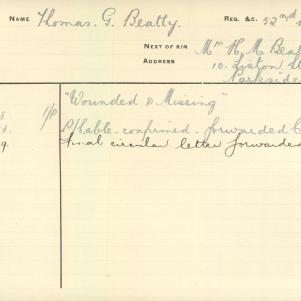 NAME Thomas. G. Beatty. REG. &C. 52nd
NEXT OF KIN Mrs H. M. Beat
ADDRESS 10. Liston St
Parkside
"Wounded & Missing"
1/P
confirmed. forwarded
9. final circular letter forwarded